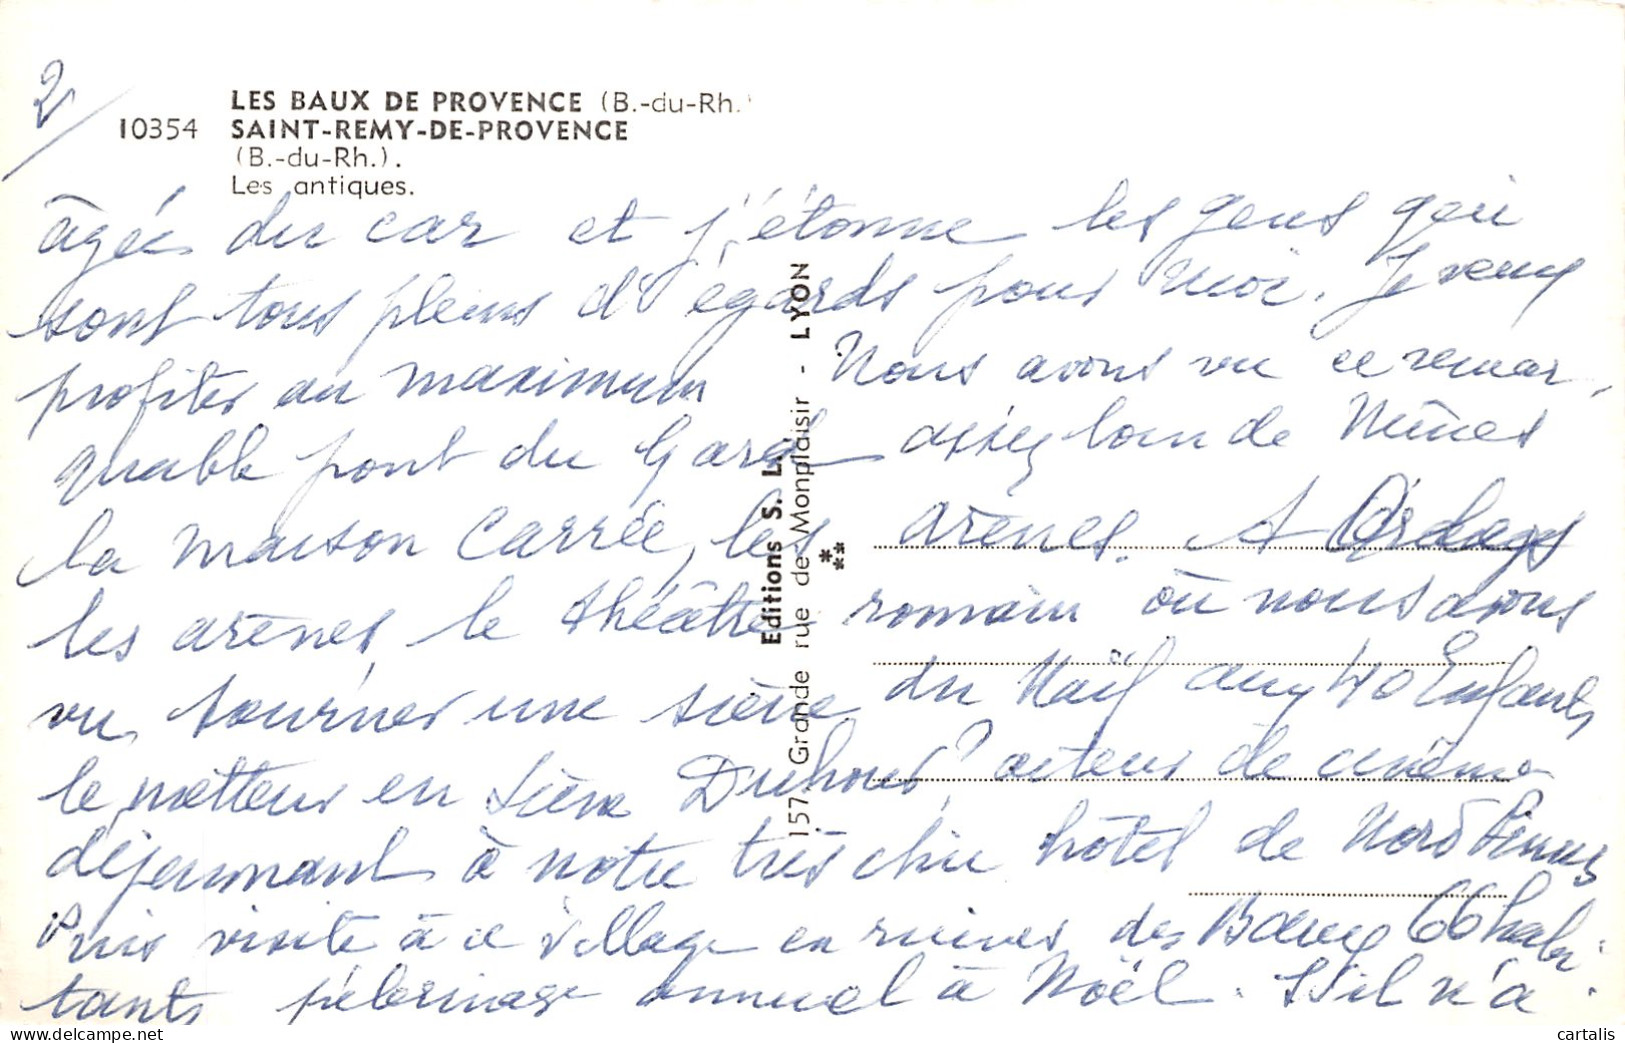 2/
LES BAUX DE PROVENCE (B.-du-Rh.
10354 SAINT-REMY-DE-PROVENCE
(B.-du-Rh.).
Les antiques.
âgée du car et j'étonne les gens qui
sont tous pleins d'égards pour moi. Je veux
profiter au maximum Nous avons vu ce remar
quable pont du Gard assez loin de Nîmes
la maison Carrée, les arènes. A
les arènes, le théâtre romain où nous avons
vu tourner une scène du aux 40 Enfants
le metteur en scène Duhour? acteur de cinéma
déjeunant à notre très chic hôtel de Nord Pinus
Puis visite à ce village en ruines des Baux 66 habi
tants pèlerinage annuel à Noël. S'il n'a
Editions S. L. - LYON
157 Grande rue de Monplaisir
***
cartalis